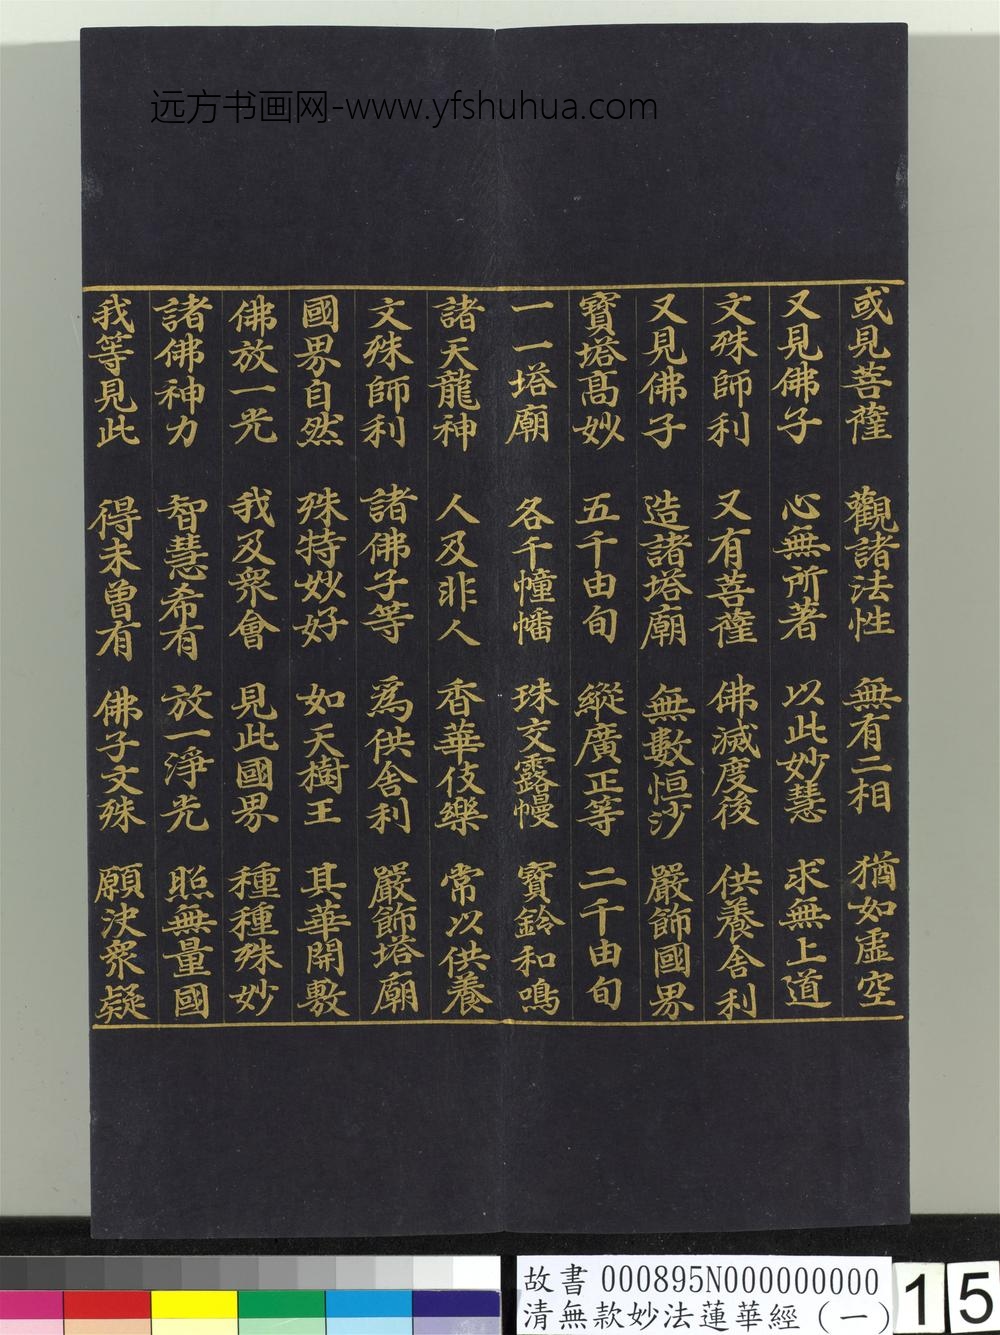 远方书画网-www.yfshuhua.com
或見菩薩 觀諸法性 無有二相 猶如虛空
又見佛子 心無所著 以此妙慧 求無上道
文殊師利 又有菩薩 佛滅度後 供養舍利
又見佛子 造諸塔廟 無數恒沙 嚴飾國界
寶塔高妙 五千由旬 縱廣正等 二千由旬
一一塔廟 各千幢幡 珠交露幔 寶鈴和鳴
諸天龍神 人及非人 香華伎樂 常以供養
文殊師利 諸佛子等 為供舍利 嚴飾塔廟
國界自然 殊特妙好 如天樹王 其華開敷
佛放一光 我及衆會 見此國界 種種殊妙
諸佛神力 智慧希有 放一淨光 照無量國
我等見此 得未曾有 佛子文殊 願決衆疑
故書 000895N000000000
清無款妙法蓮華經(一)
15